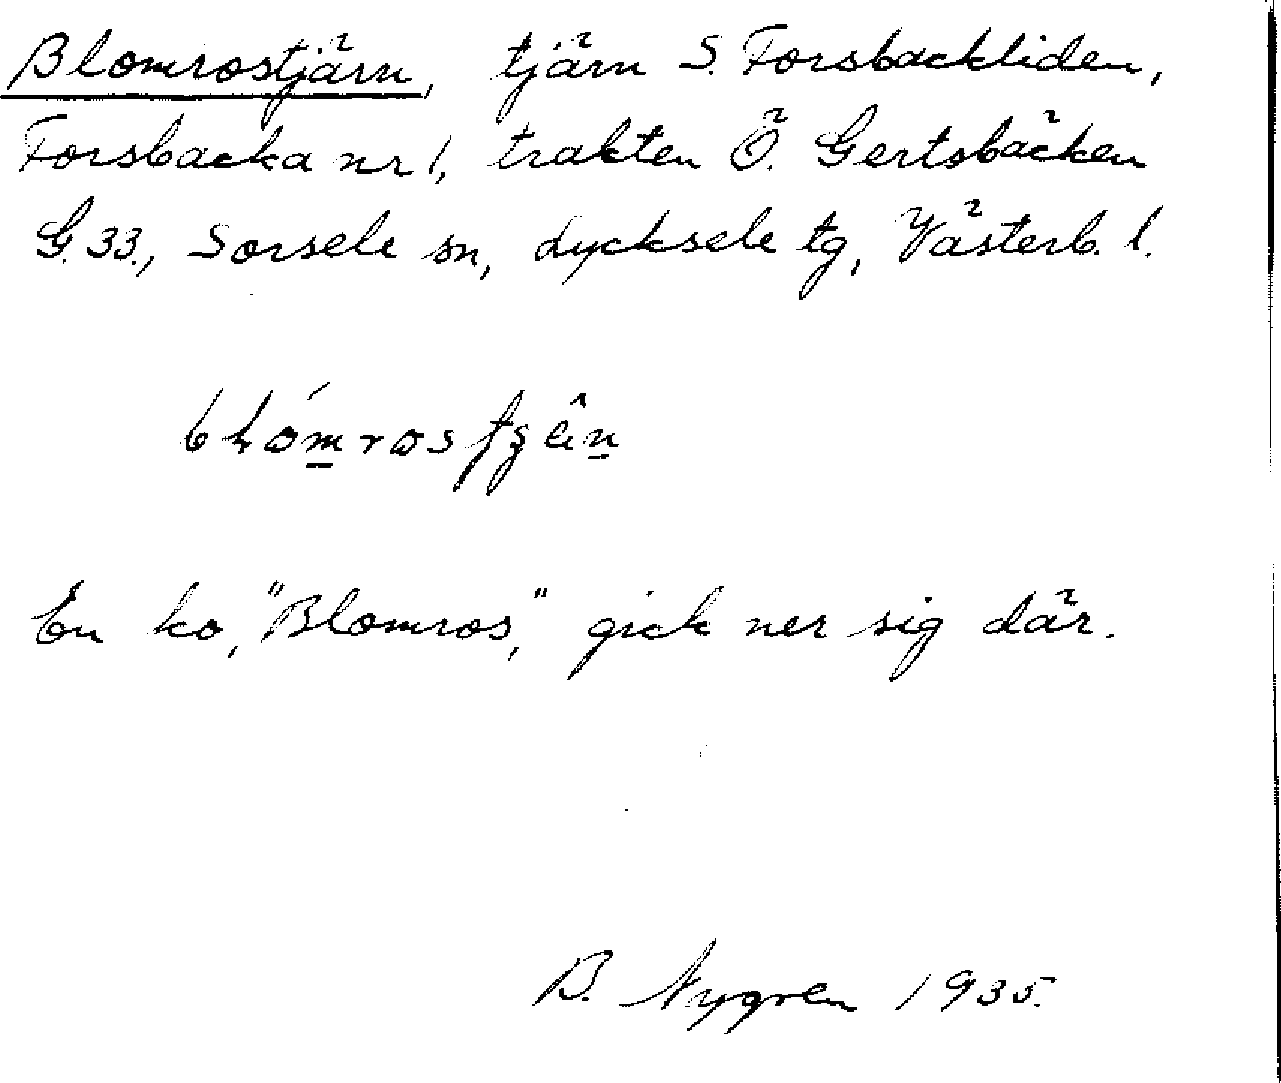 Blomrostjärn, tjärn S. Forsbackliden,
Forsbacka nr 1, trakten Ö. Gertsbäcken
G.33., Sorsele sn, Lycksele tg, Västerb. l.
En ko, "Blomros," gick ner sig där.
B. Nygren 1935.